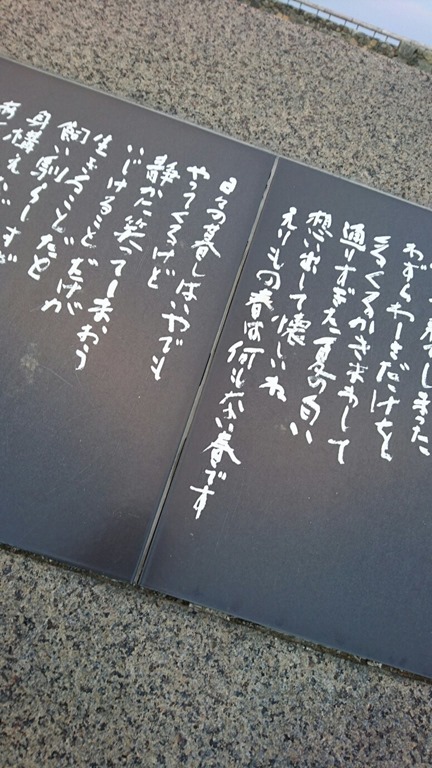 わずらわしさだけを
くるくるかきまわして
通りすぎた夏の匂い
想い出して懐しいね
えりもの春は何もない春です
日々の暮しはいやでも
やってくるけど
静かに笑ってしまおう
いじけることだけが
生きることだと
飼い馴らしすぎ
身構えながら